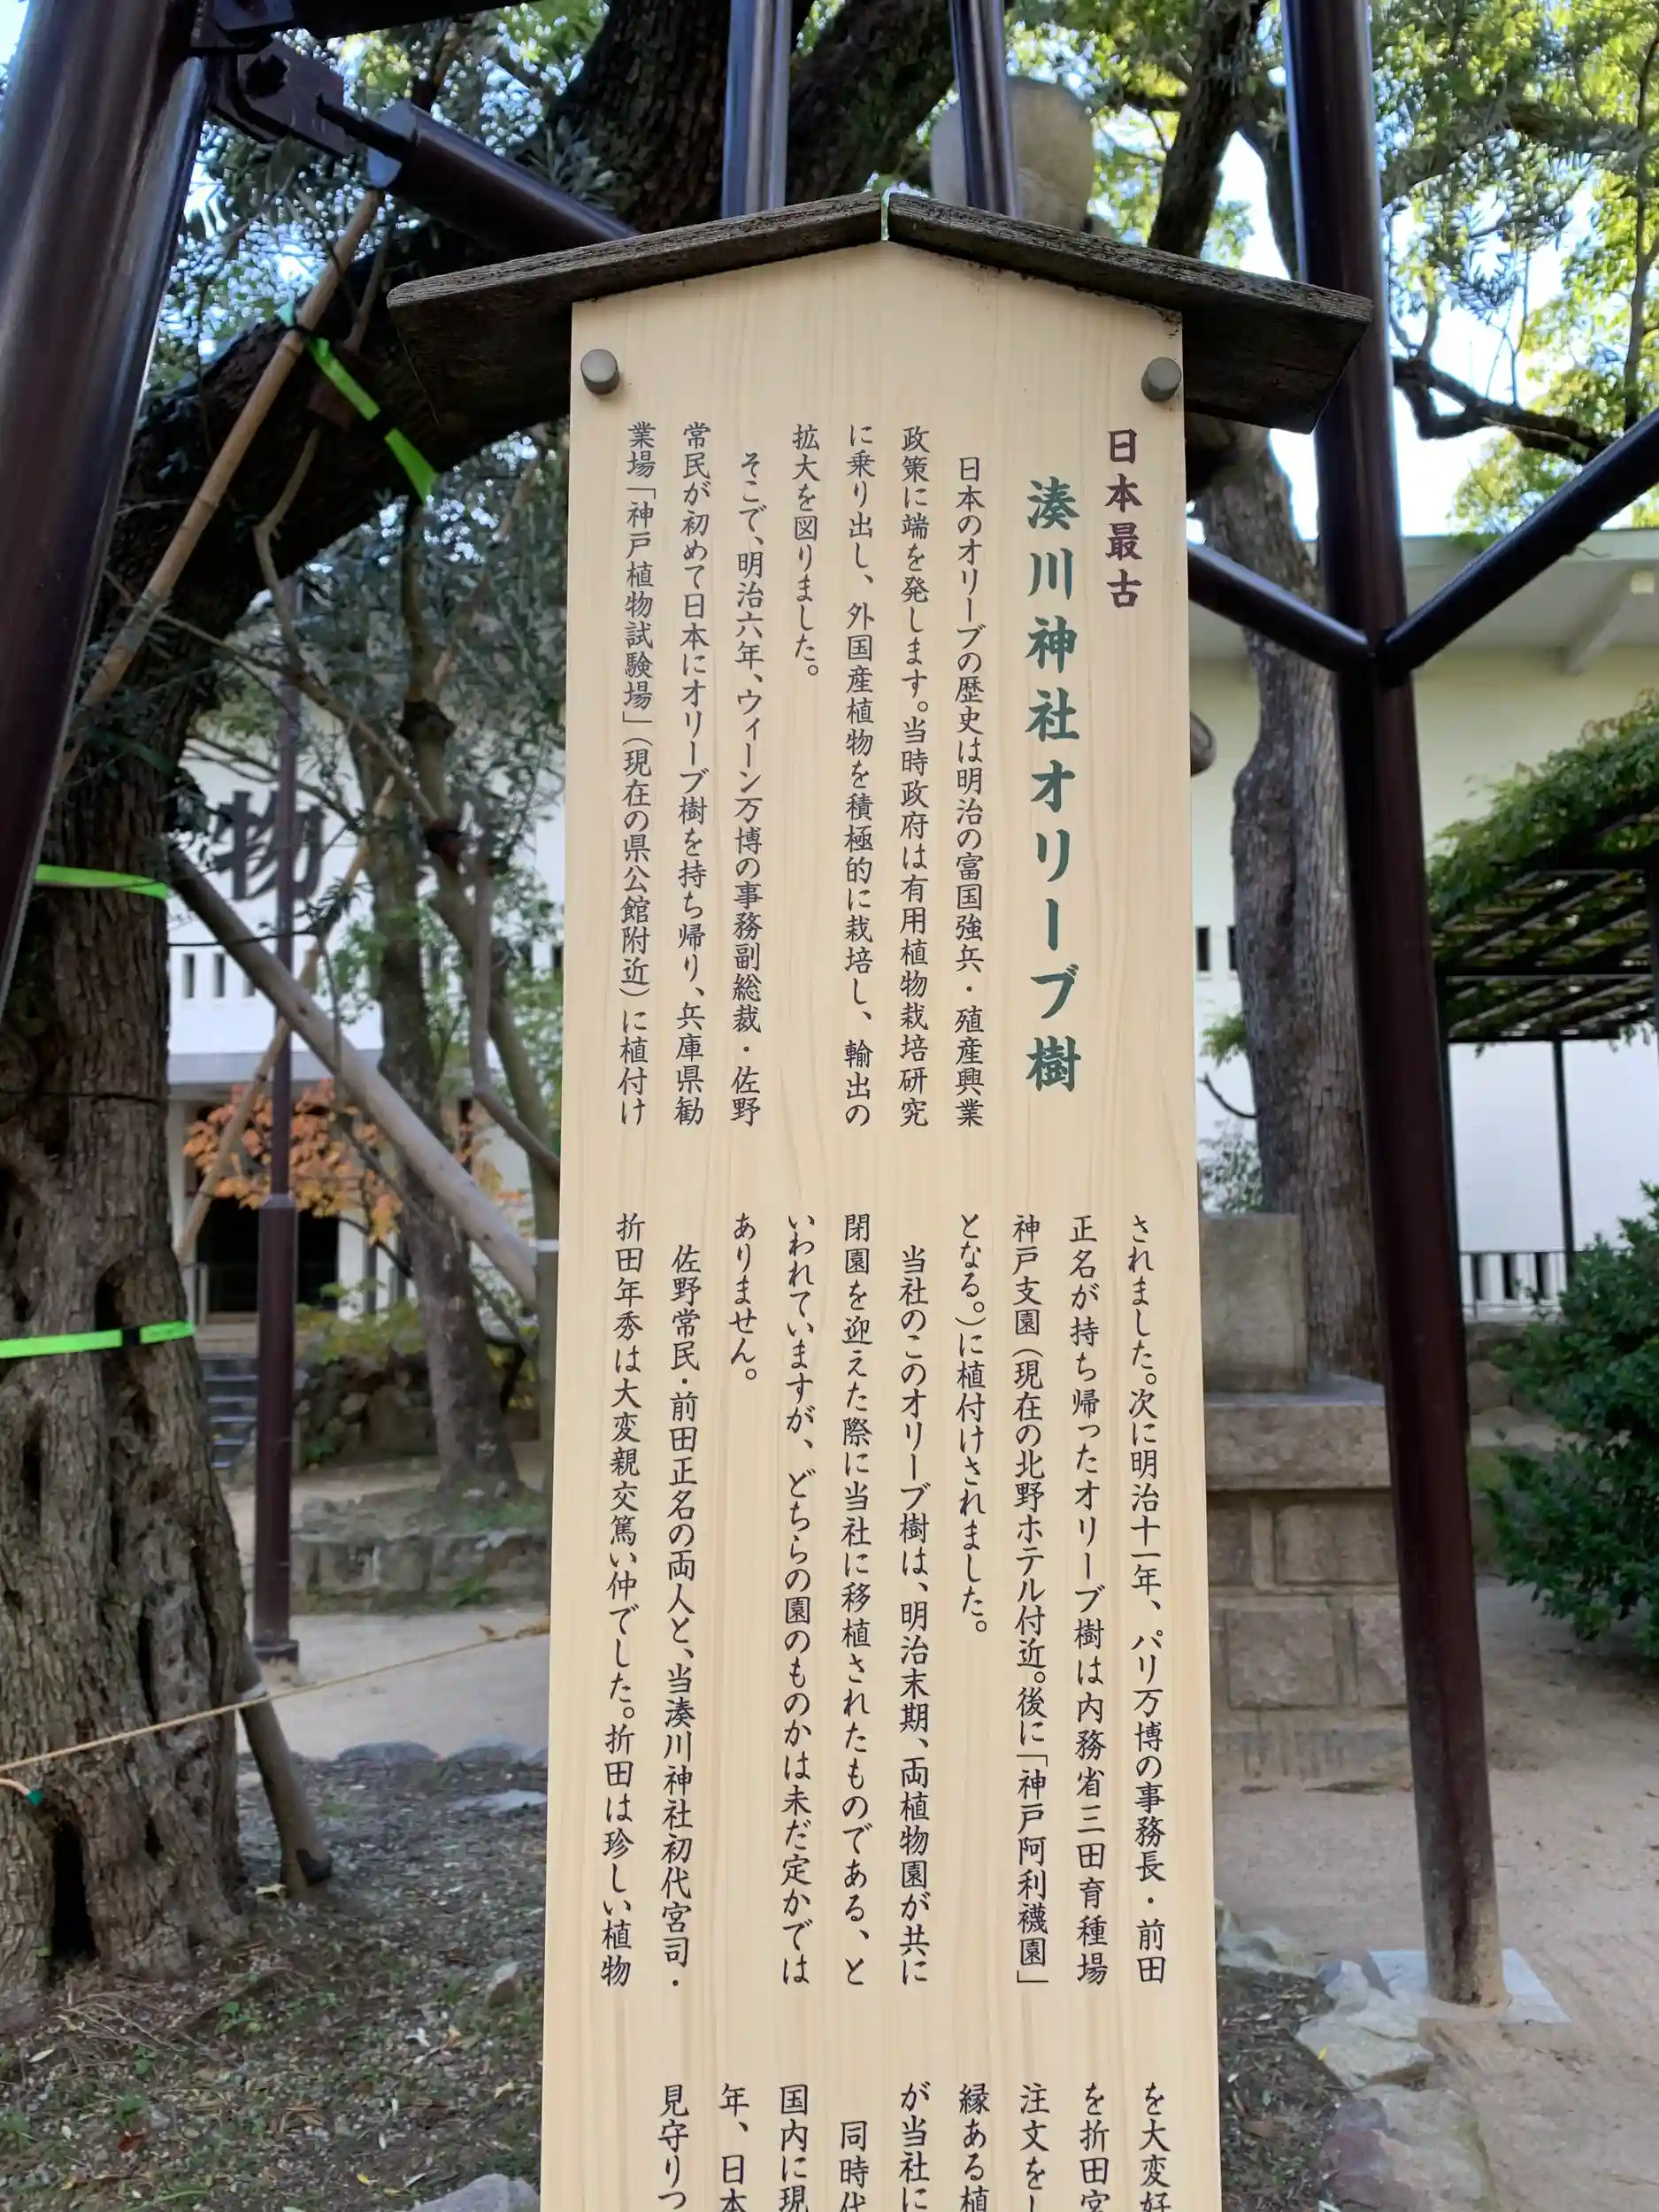 日本最古
湊川神社オリーブ樹
日本のオリーブの歴史は明治の富国強兵・殖産興業
政策に端を発します。当時政府は有用植物栽培研究
に乗り出し、外国産植物を積極的に栽培し、輸出の
拡大を図りました。
そこで、明治六年、ウィーン万博の事務副総裁・佐野
常民が初めて日本にオリーブ樹を持ち帰り、兵庫県勧
業場「神戸植物試験場」（現在の県公館附近）に植付け
されました。次に明治十一年、パリ万博の事務長・前田
正名が持ち帰ったオリーブ樹は内務省三田育種場
神戸支園（現在の北野ホテル付近。後に「神戸阿利襪園」
となる。）に植付けされました。
当社のこのオリーブ樹は、明治末期、両植物園が共に
閉園を迎えた際に当社に移植されたものである、と
いわれていますが、どちらの園のものかは未だ定かでは
ありません。
佐野常民・前田正名の両人と、当湊川神社初代宮司・
折田年秀は大変親交篤い仲でした。折田は珍しい植物
を大変好
を折田宮
注文をし
縁ある植
が当社に
同時代
国内に現
年、日本
見守りつ
物